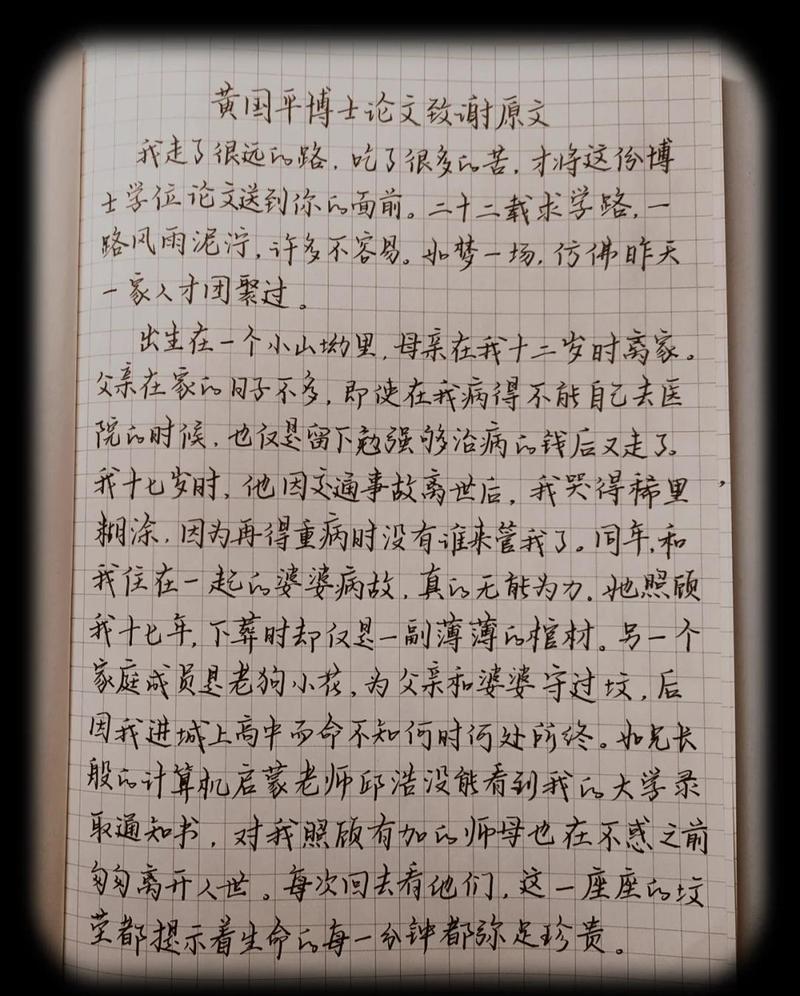 黄国平博士论文致谢原文
我走了很远的路，吃了很多的苦，才将这份博
士学位论文送到你的面前。二十二载求学路，一
路风雨泥泞，许多不容易。如梦一场，仿佛昨天
一家人才团聚过。
出生在一个小山坳里，母亲在我十二岁时离家。
父亲在家的日子不多，即使在我病得不能自己去医
院的时候，也仅是留下勉强够治病的钱后又走了。
我十七岁时，他因交通事故离世后，我哭得稀里
糊涂，因为再得重病时没有谁来管我了。同年，和
我住在一起的婆婆病故，真的无能为力。她照顾
我十七年，下葬时却仅是一副薄薄的棺材。另一个
家庭成员是老狗小花，为父亲和婆婆守过坟，后
因我进城上高中而命不知何时何处所终。如兄长
般的计算机启蒙老师邱浩没能看到我的大学录
取通知书，对我照顾有加的师母也在不惑之前
匆匆离开人世。每次回去看他们，这一座座的坟
茔都提示着生命的每一分钟都弥足珍贵。